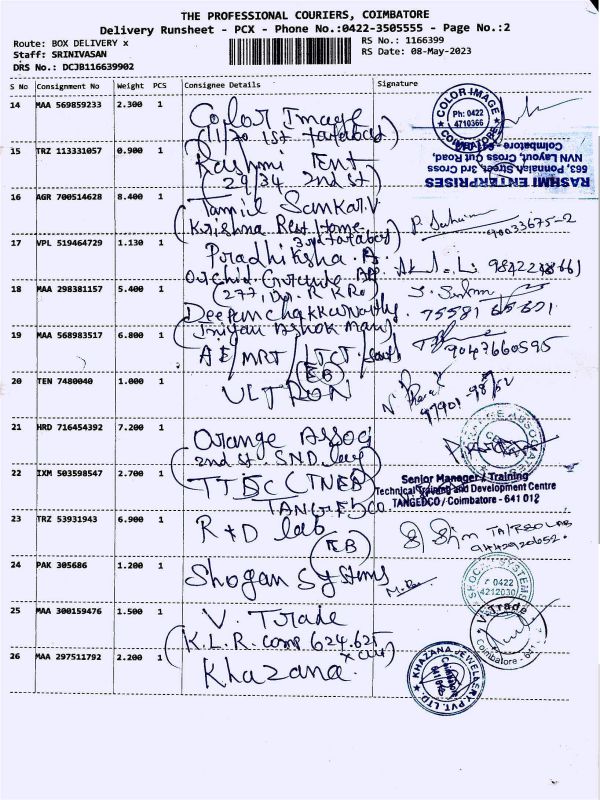 THE PROFESSIONAL COURIERS, COIMBATORE
Delivery Runsheet - PCX - Phone No.:0422-3505555 - Page No.:2
Route: BOX DELIVERY x
RS No.: 1166399
Staff: SRINIVASAN
RS Date: 08-May-2023
DRS No.: DCJB116639902
S No Consignment No Weight PCS Consignee Details Signature
14 MAA 569859233 2.300 1 Color Image
(1/70 1st tatabad)
COLOR IMAGE
Ph: 0422
4710366
15 TRZ 113331057 0.900 1 Rashmi Ent
(29/34 2nd st)
RASHMI ENTERPRISES
593, Ponnaiah Street, 3rd Cross
NVN Layout, Cross Cut Road,
Coimbatore - 641 012
16 AGR 700514628 8.400 1 Tamil Sankar.V
(Krishna Rest Home
3rd tatabad)
90033675-2
17 VPL 519464729 1.130 1 Pradhiksha A.
Orchid
18 MAA 298381157 5.400 1 (277, Dr. R.K Rd)
Deepan chakkaravathy.
75581
19 MAA 568983517 6.800 1 Ashok
AE/MRT/LTCT/South
(EB)
9047660595
20 TEN 7480040 1.000 1 ULTRON
97901-98752
21 HRD 716454392 7.200 1 Orange Assoc
(2nd st S.N.D. Lay)
22 IXM 503598547 2.700 1 TTDC (TNEB)
TANGEDCO.
Senior Manager / Training
Technical Training and Development Centre
TANGEDCO / Coimbatore - 641 012
23 TRZ 53931943 6.900 1 R+D lab
(EB)
9442920652.
24 PAK 305686 1.200 1 Shogan Systems
0422
4212030
25 MAA 300159476 1.500 1 V. Trade
(K.L.R. comp 624.625
x cut)
V. Trade
Coimbatore - 641
26 MAA 297511792 2.200 1 Khazana.
KHAZANA JEWELLERY PVT. LTD